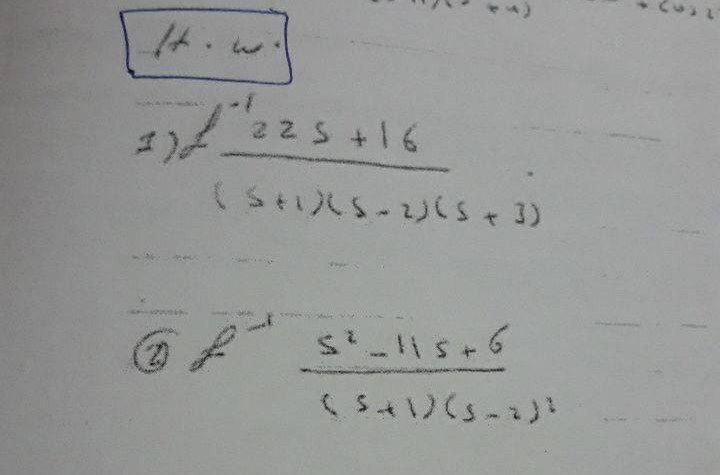 H.w.
1) ℒ⁻¹ 22s+16
(s+1)(s-2)(s+3)
② ℒ⁻¹ s²-11s+6
(s+1)(s-2)²